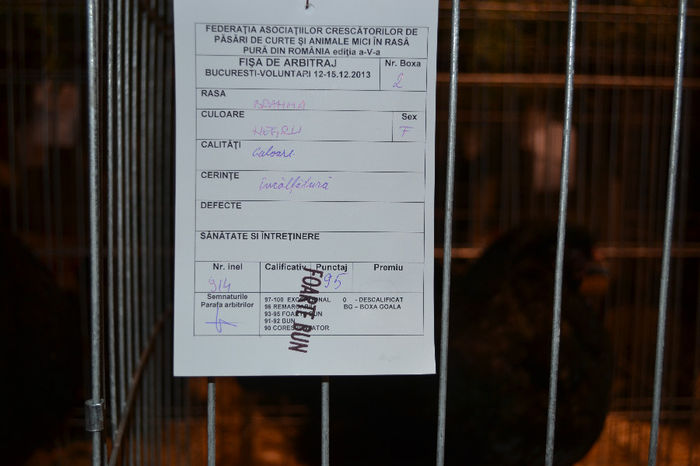 FEDERAȚIA ASOCIAȚIILOR CRESCĂTORILOR DE
PĂSĂRI DE CURTE ȘI ANIMALE MICI ÎN RASA
PURĂ DIN ROMÂNIA ediția a-V-a
FIȘA DE ARBITRAJ
BUCURESTI-VOLUNTARI 12-15.12.2013
Nr. Boxa
2
RASA
BRAHMA
CULOARE
NEGRU
Sex
F
CALITĂȚI
Culoare
CERINȚE
încălțătură
DEFECTE
SĂNĂTATE SI ÎNTREȚINERE
Nr. inel
914
Calificativ
Punctaj
95
Premiu
FOARTE BUN
Semnaturile
Parafa arbitrilor
97-100 EXCEPȚIONAL 0 - DESCALIFICAT
96 REMARCABIL BG – BOXA GOALA
93-95 FOARTE BUN
91-92 BUN
90 CORESPUNZATOR